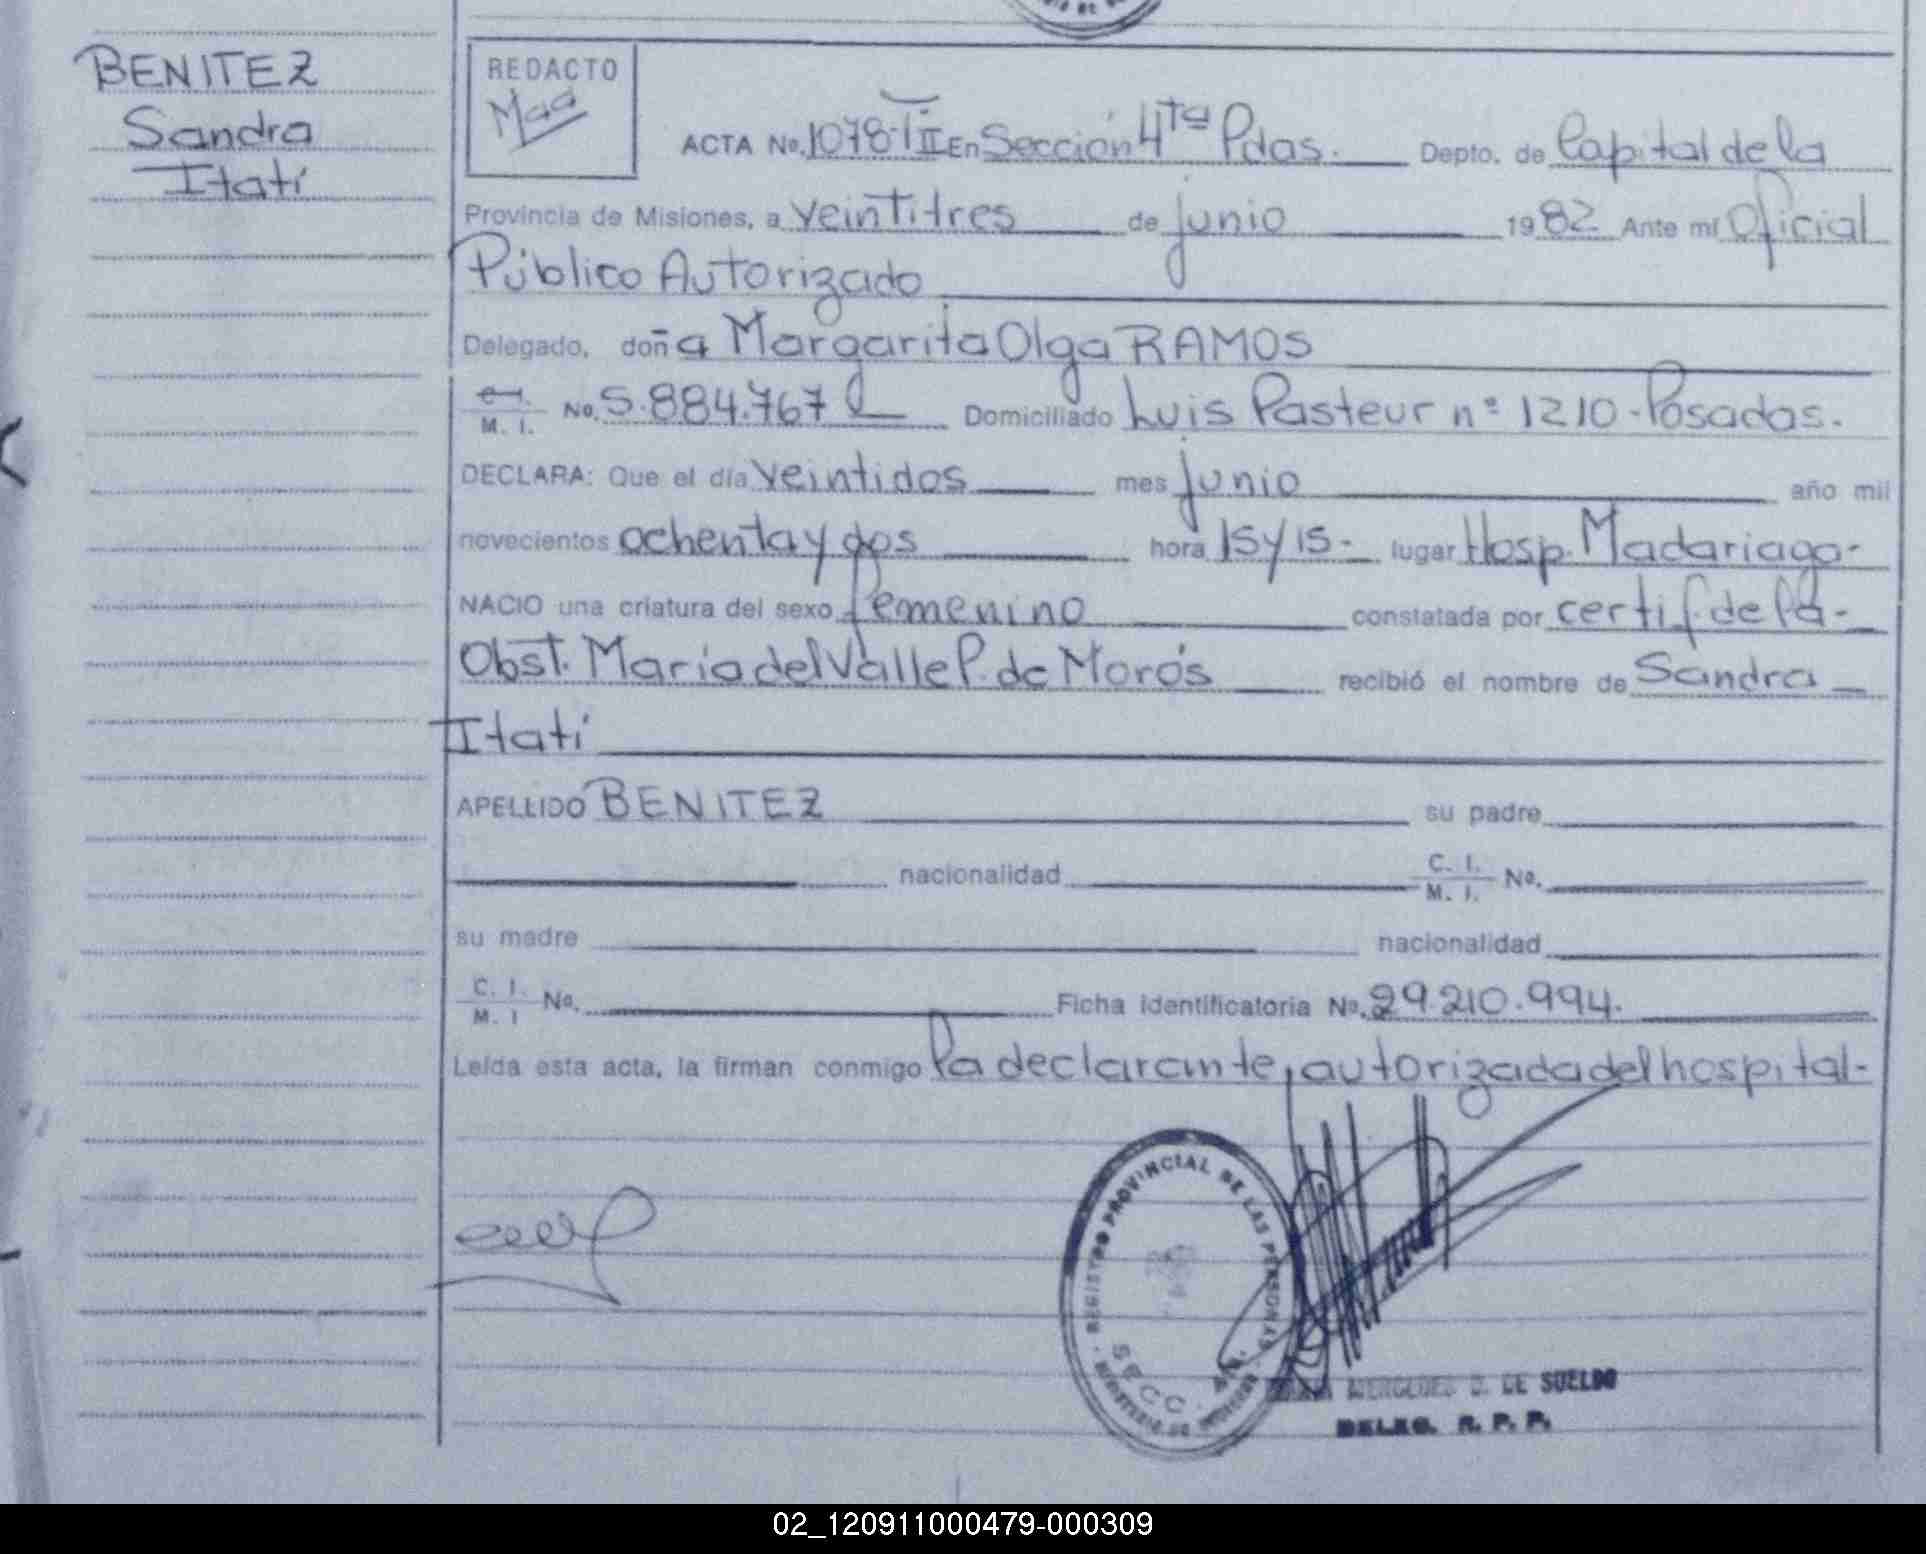 BENITEZ
Sandra
Itatí
REDACTO
ACTA No. 1078-TII En Sección 4ta Pdas. Depto. de Capital de la
Provincia de Misiones, a veintitres de junio 1982. Ante mí Oficial
Público Autorizado
Delegado, doña Margarita Olga RAMOS
M. I. No. 5.884.767 Domiciliado Luis Pasteur nº 1210-Posadas.
DECLARA: Que el día veintidos mes junio año mil
novecientos ochenta y dos hora 15 y 15- lugar Hosp. Madariaga-
NACIO una criatura del sexo femenino constatada por certif. de la-
Obst. María del Valle P. de Morós recibió el nombre de Sandra
Itatí
APELLIDO BENITEZ su padre
nacionalidad C. I. M. I. No.
su madre nacionalidad
C. I. M. I No. Ficha identificatoria No. 29.210.994.
Leída esta acta, la firman conmigo la declarante, autorizada del hospital-
REGISTRO PROVINCIAL DE LAS PERSONAS
SECC.
MERCEDES D. DE SUELDO
DELEG. R. P. P.
02_120911000479-000309